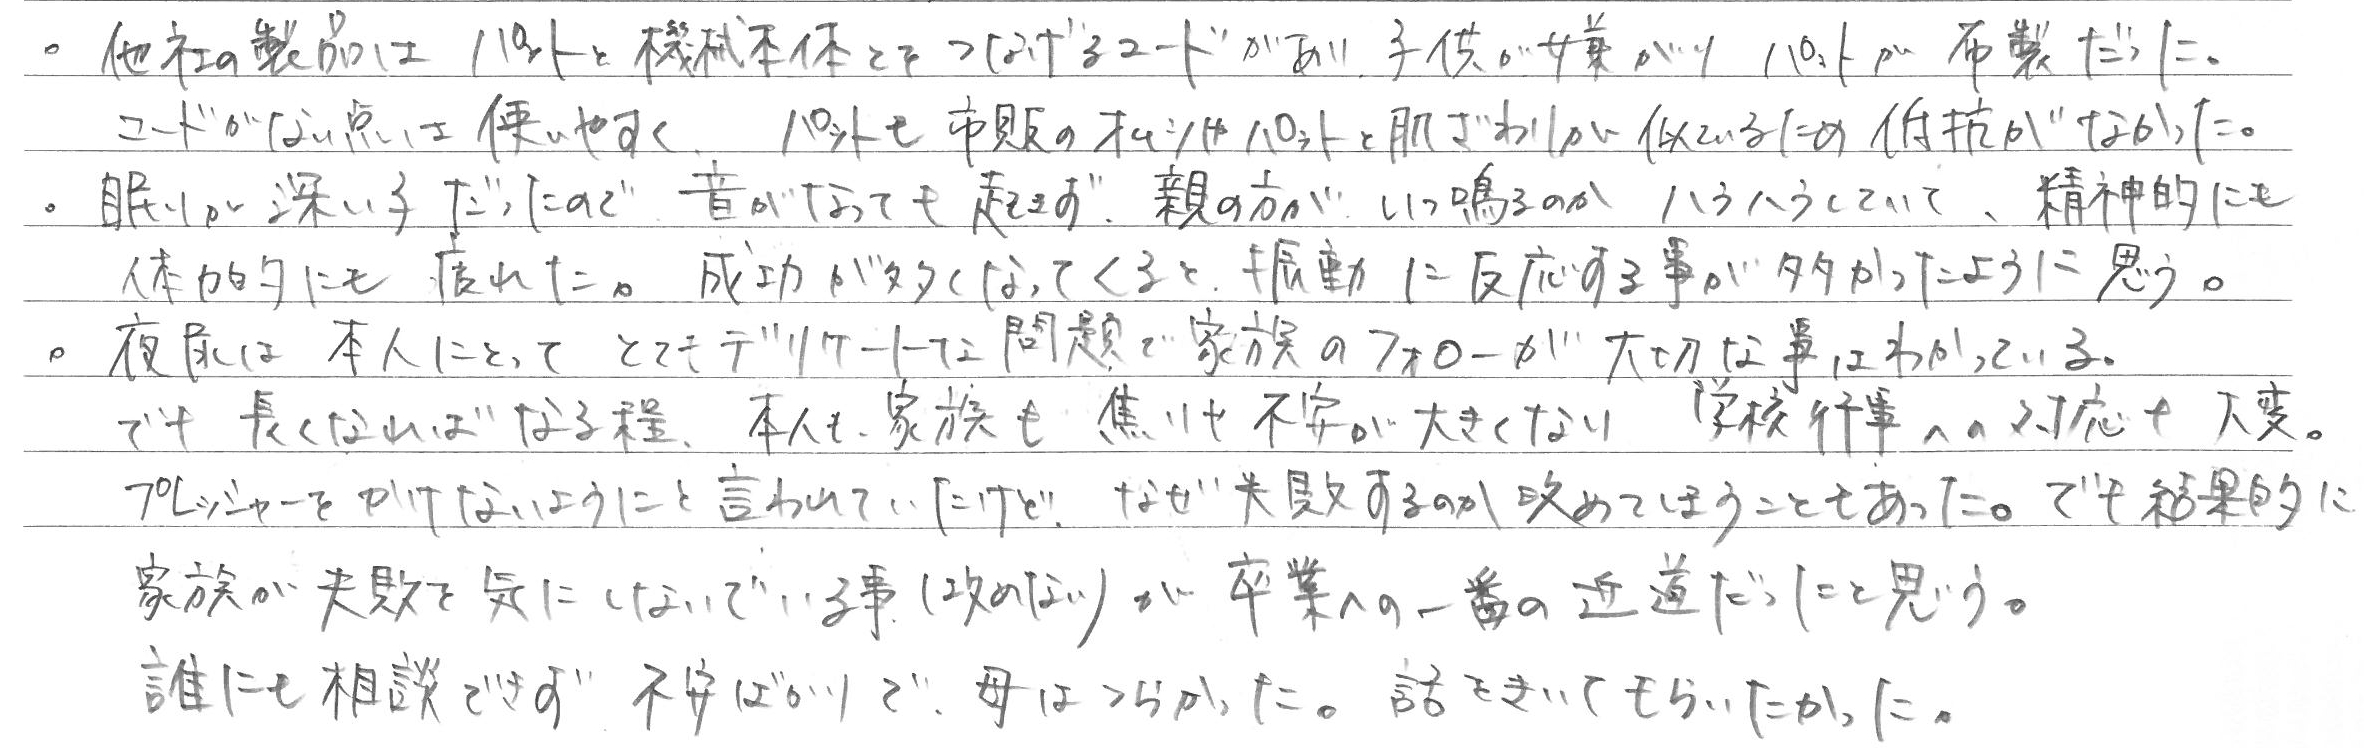 。他社の製品はパットと機械本体とをつなげるコードがあり、子供が嫌がり パットが布製だった。
コードがない点は使いやすく、パットも市販のオムツやパットと肌ざわりが似ているため 抵抗がなかった。
。眠りが深い子だったので 音がなっても起きず、親の方が いつ鳴るのか ハラハラしていて、精神的にも
体力的にも 疲れた。成功が多くなってくると、振動に反応する事が多かったように思う。
。夜尿は 本人にとって とてもデリケートな問題で家族のフォローが 大切な事はわかっている。
でも 長くなればなる程、本人も、家族も 焦りや不安が大きくなり 学校行事への対応も大変。
プレッシャーをかけないようにと言われていたけど、なぜ失敗するのか攻めてしまうこともあった。でも結果的に
家族が失敗を気にしないでいる事(攻めない)が 卒業への一番の近道だったと思う。
誰にも相談できず 不安ばかりで、母はつらかった。話をきいてもらいたかった。